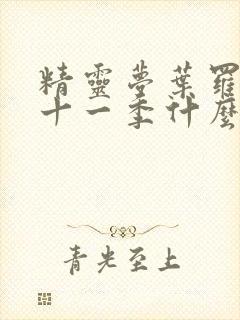 精靈夢葉羅
十一季什麼
青光至上